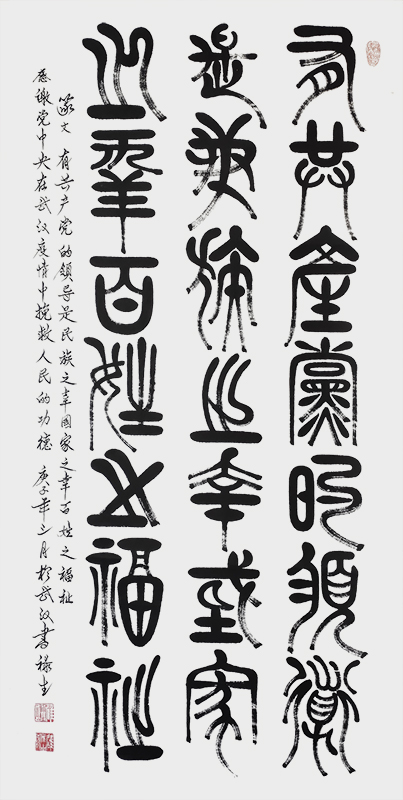 有共產黨的領導
是民族之幸國家
之幸百姓之福祉
篆文 有共产党的领导是民族之幸國家之幸百姓之福祉
感谢党中央在武汉疫情中挽救人民的功德 庚子年三月於武汉書禄生